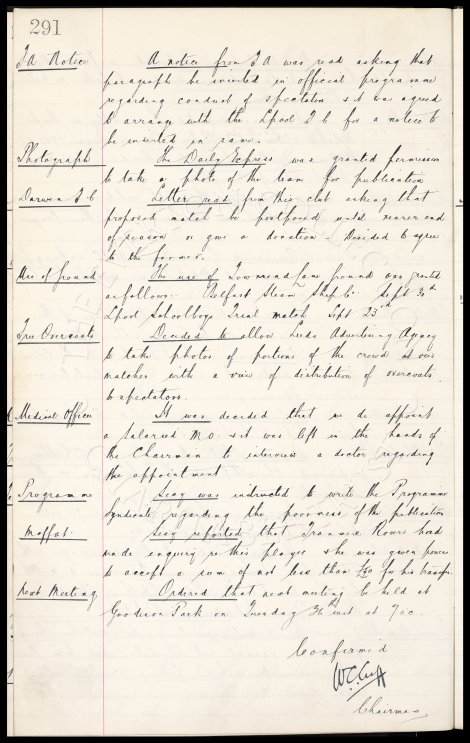 291
F.A. Notice A notice from F A was read asking that
paragraph be inserted in official programme
regarding conduct of spectators & it was agreed
to arrange with the Lpool F C for a notice to
be inserted in same.
Photograph The Daily Express was granted permission
to take a photo of the team for publication
Darwen F C Letter read from this club asking that
proposed match be postponed until nearer end
of season or give a donation - Decided to agree
to the former.
Use of Ground The use of Townsend Lane ground was granted
as follows:- Belfast Steam Ship Co. Sept 30th
Lpool Schoolboys Trial match Sept 23rd
Free Overcoats Decided to allow Leeds Advertising Agency
to take photos of portions of the crowd at our
matches with a view of distribution of overcoats
to spectators.
Medical Officer It was decided that we do appoint
a Salaried M.O. & it was left in the hands of
the Chairman to interview a doctor regarding
the appointment.
Programme Secy was instructed to write the Programme
Syndicate regarding the poorness of the publication
Moffat. Secy reported that Tranmere Rovers had
made enquiry re this player & he was given power
to accept a sum of not less than for his transfer
Next Meeting Ordered that next meeting be held at
Goodison Park on Tuesday inst at 7 oc.
Confirmed
W.C. Cuff
Chairman